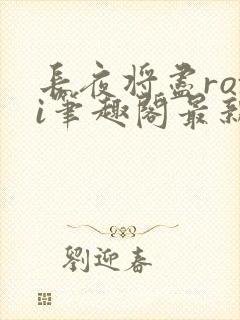 长夜将尽ro
i笔趣阁最新
劉迎春